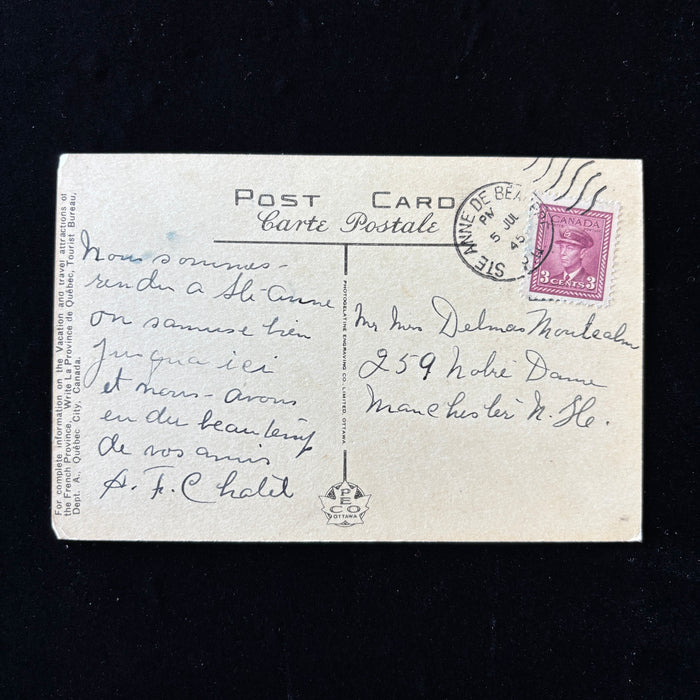 POST CARD
Carte Postale
For complete information on the Vacation and travel attractions of
the French Province, Write La Province de Québec, Tourist Bureau,
Dept. A., Québec City, Canada.
Nous sommes-
rendu a Ste Anne
on samuse bien
jusqua ici
et nous-avons
eu du beau temp
de vos amis
A. F. Chatel
PHOTOGELATINE ENGRAVING CO. LIMITED, OTTAWA.
PECO
OTTAWA
STE ANNE DE
PM
5 JUL
45
CANADA
3 CENTS 3
Mr Mrs Delmas Montcalm
259 Notre Dame
Manchester N. H.